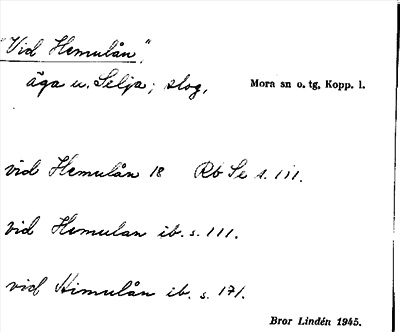 "Vid Hemulån",
äga u. Selja; slog, Mora sn o. tg, Kopp. l.
vid Hemulån 18 Rb Se s. 111.
vid Homulan ib. s. 111.
vid Himulån ib. s. 171.
Bror Lindén 1945.